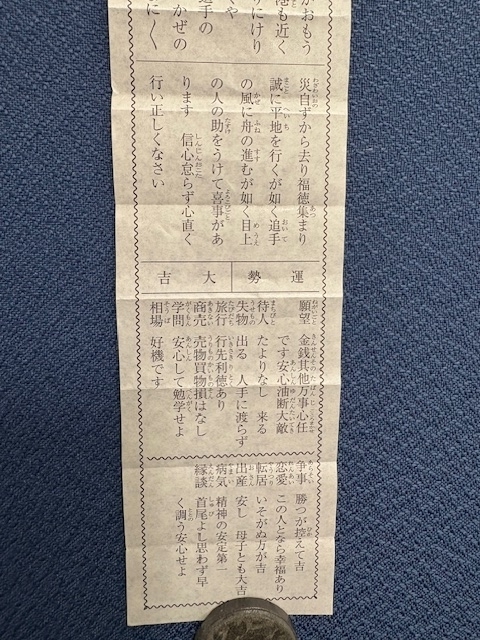 がおもう
港も近く
りにけり
や
追手の
かぜの
に〱
災自ずから去り福徳集まり
誠に平地を行くが如く追手
の風に舟の進むが如く目上
の人の助をうけて喜事があ
ります　信心怠らず心直く
行い正しくなさい
運勢　大吉
願望　金銭其他万事心任
です安心油断大敵
待人　たよりなし　来る
失物　出る　人手に渡らず
旅行　行先利徳あり
商売　売物買物損はなし
学問　安心して勉学せよ
相場　好機です
争事　勝つが控えて吉
恋愛　この人となら幸福あり
転居　いそがぬ方が吉
出産　安し　母子とも大吉
病気　精神の安定第一
縁談　首尾よし思わず早
く調う安心せよ